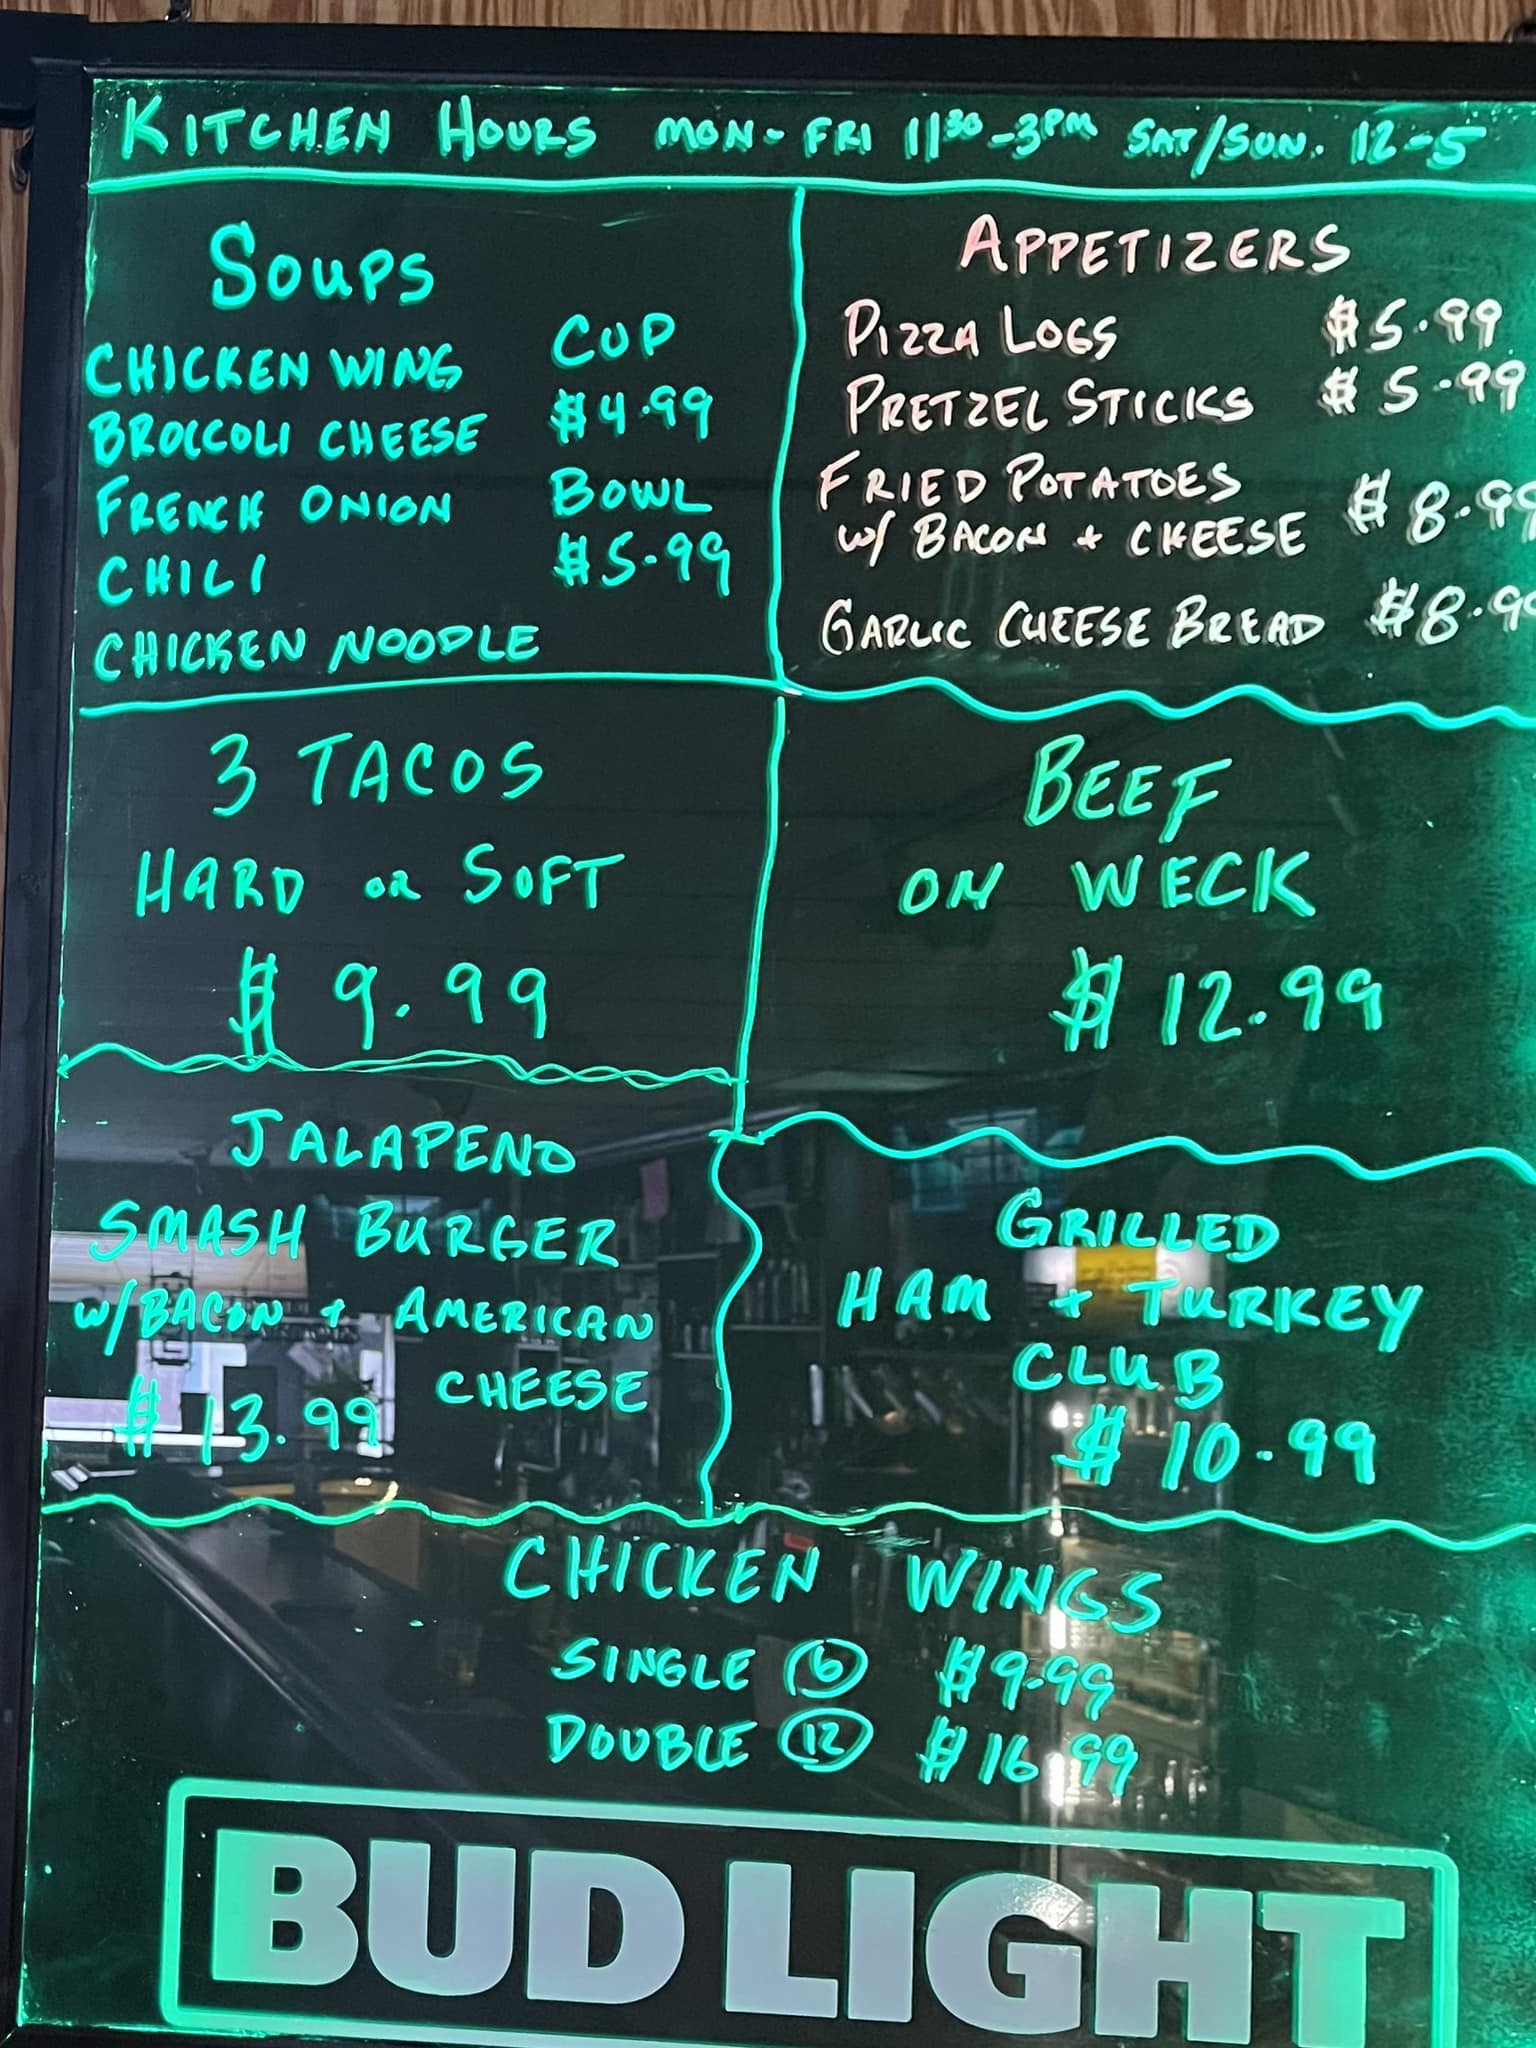 KITCHEN HOURS MON-FRI 1130-3PM SAT/SUN. 12-5
SOUPS
CHICKEN WING
BROCCOLI CHEESE
FRENCH ONION
CHILI
CHICKEN NOODLE
CUP
$4.99
BOWL
$5.99
APPETIZERS
PIZZA LOGS $5.99
PRETZEL STICKS $5.99
FRIED POTATOES
W/ BACON + CHEESE $8.99
GARLIC CHEESE BREAD $8.99
3 TACOS
HARD OR SOFT
$9.99
BEEF
ON WECK
$12.99
JALAPENO
SMASH BURGER
W/BACON + AMERICAN
CHEESE
$13.99
GRILLED
HAM + TURKEY
CLUB
$10.99
CHICKEN WINGS
SINGLE 6 $9.99
DOUBLE 12 $16.99
BUD LIGHT